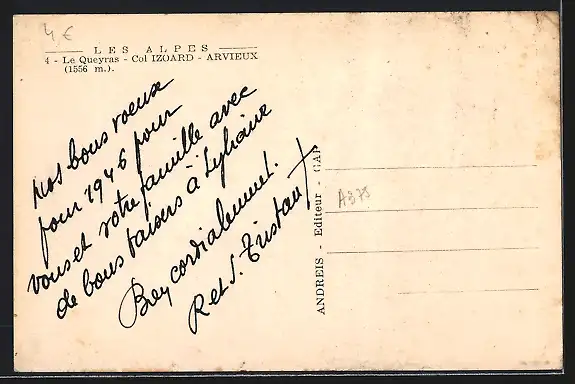 4 €
LES ALPES
4 - Le Queyras - Col IZOARD - ARVIEUX
(1556 m.).
Nos bons voeux
pour 1946 pour
vous et votre famille avec
de bons baisers à Lyliane
Bien cordialement.
R et S. Tristant
ANDREIS - Editeur - GAP
A375